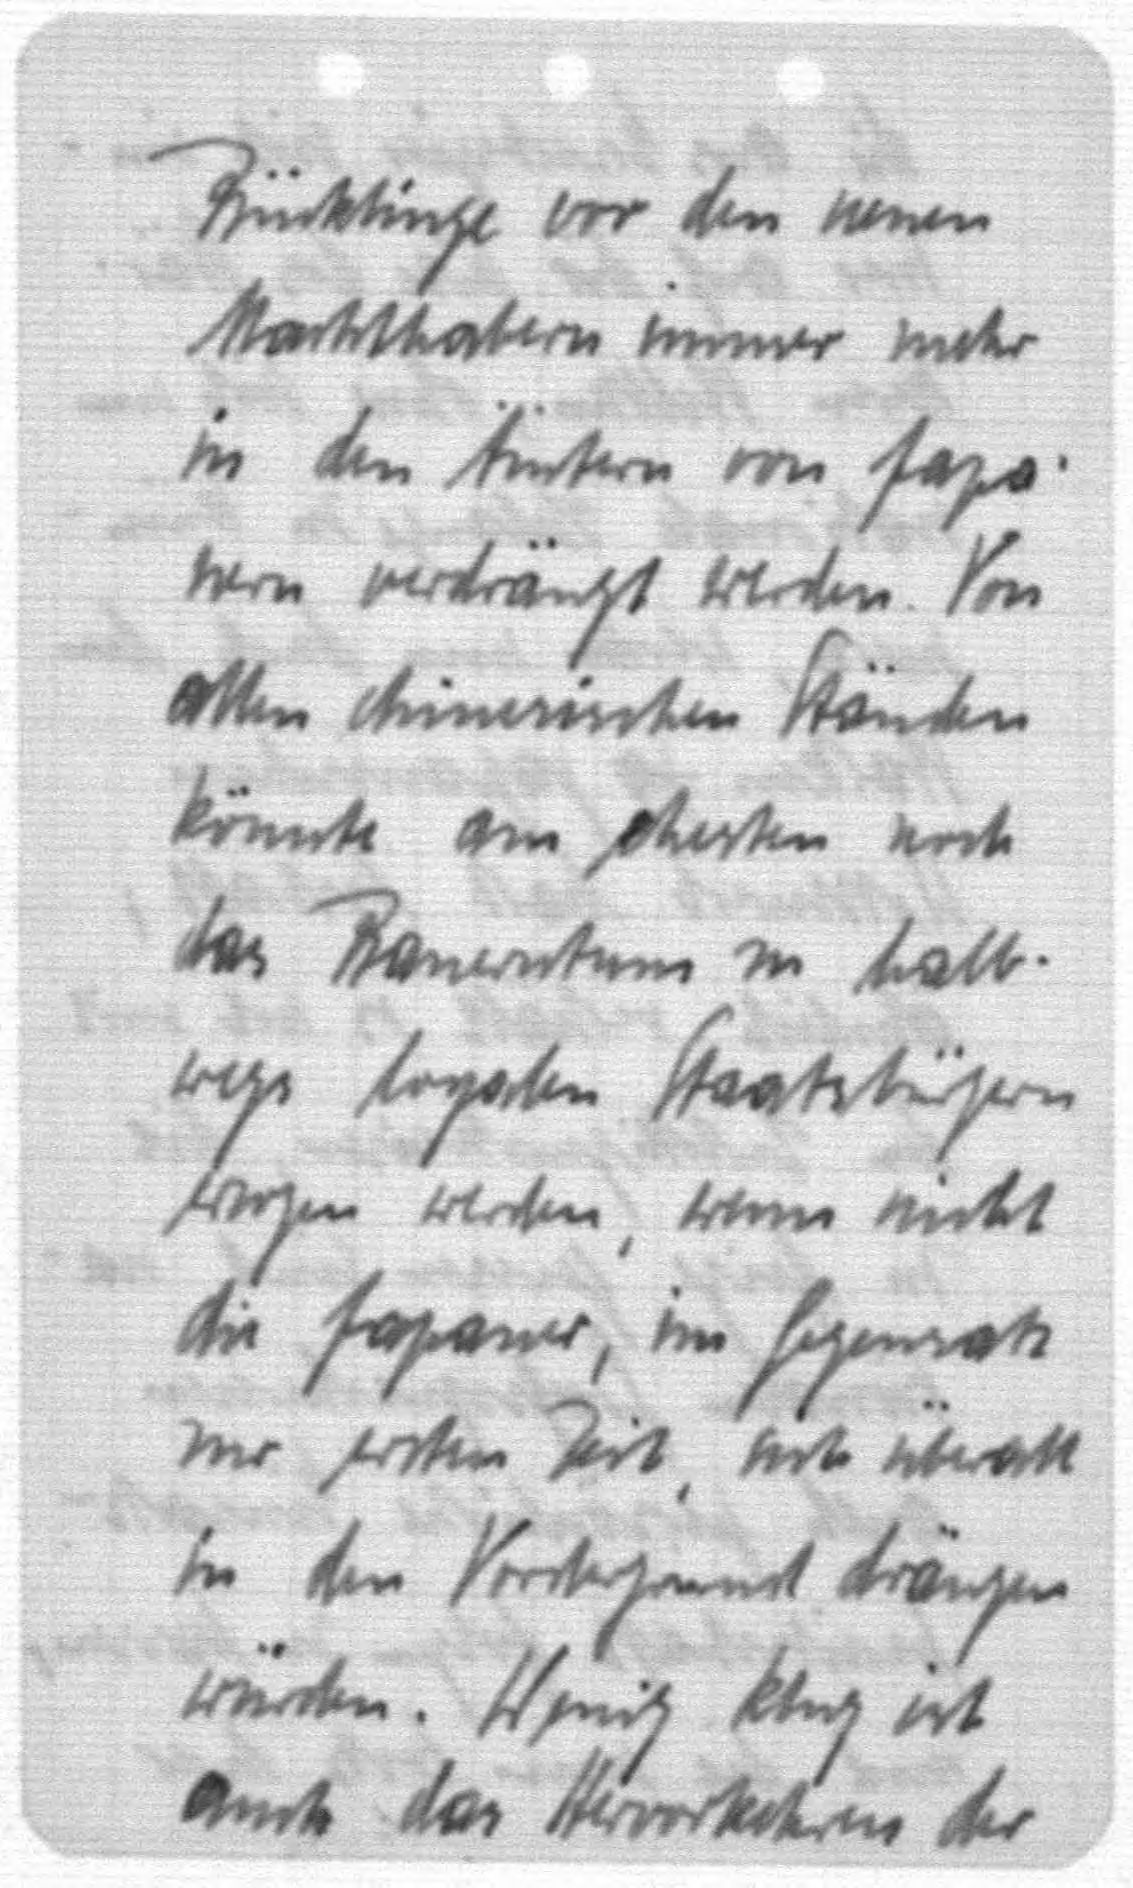 Bücklinge vor den neuen
Machthabern immer mehr
in den Ämtern von Japa-
nern verdrängt werden. Von
allen chinesischen Ständen
könnte am ehesten noch
das Bauerntum zu halb-
wegs loyalen Staatsbürgern
erzogen werden, wenn nicht
die Japaner, im Gegensatz
zur ersten Zeit, sich überall
in den Vordergrund drängen
würden. Wenig klug ist
auch das Hervorkehren der